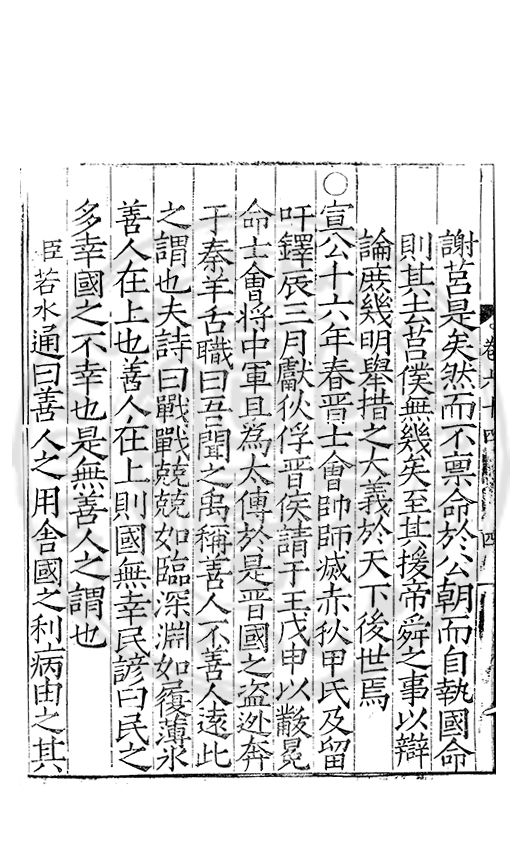 謝莒是矣然而不禀命於公朝而自執國命
則其去莒僕無幾矣至其援帝舜之事以辯
論庶幾明舉措之大義於天下後世焉
○宣公十六年春晉士會帥師滅赤狄甲氏及留
吁鐸辰三月獻狄俘晉侯請于王戊申以黻冕
命士會將中軍且為太傅於是晉國之盗逃奔
于秦羊舌職曰吾聞之禹稱善人不善人遠此
之謂也夫詩曰戰戰兢兢如臨深淵如履薄氷
善人在上也善人在上則國無幸民諺曰民之
多幸國之不幸也是無善人之謂也
臣若水通曰善人之用舍國之利病由之其
卷六十四
四